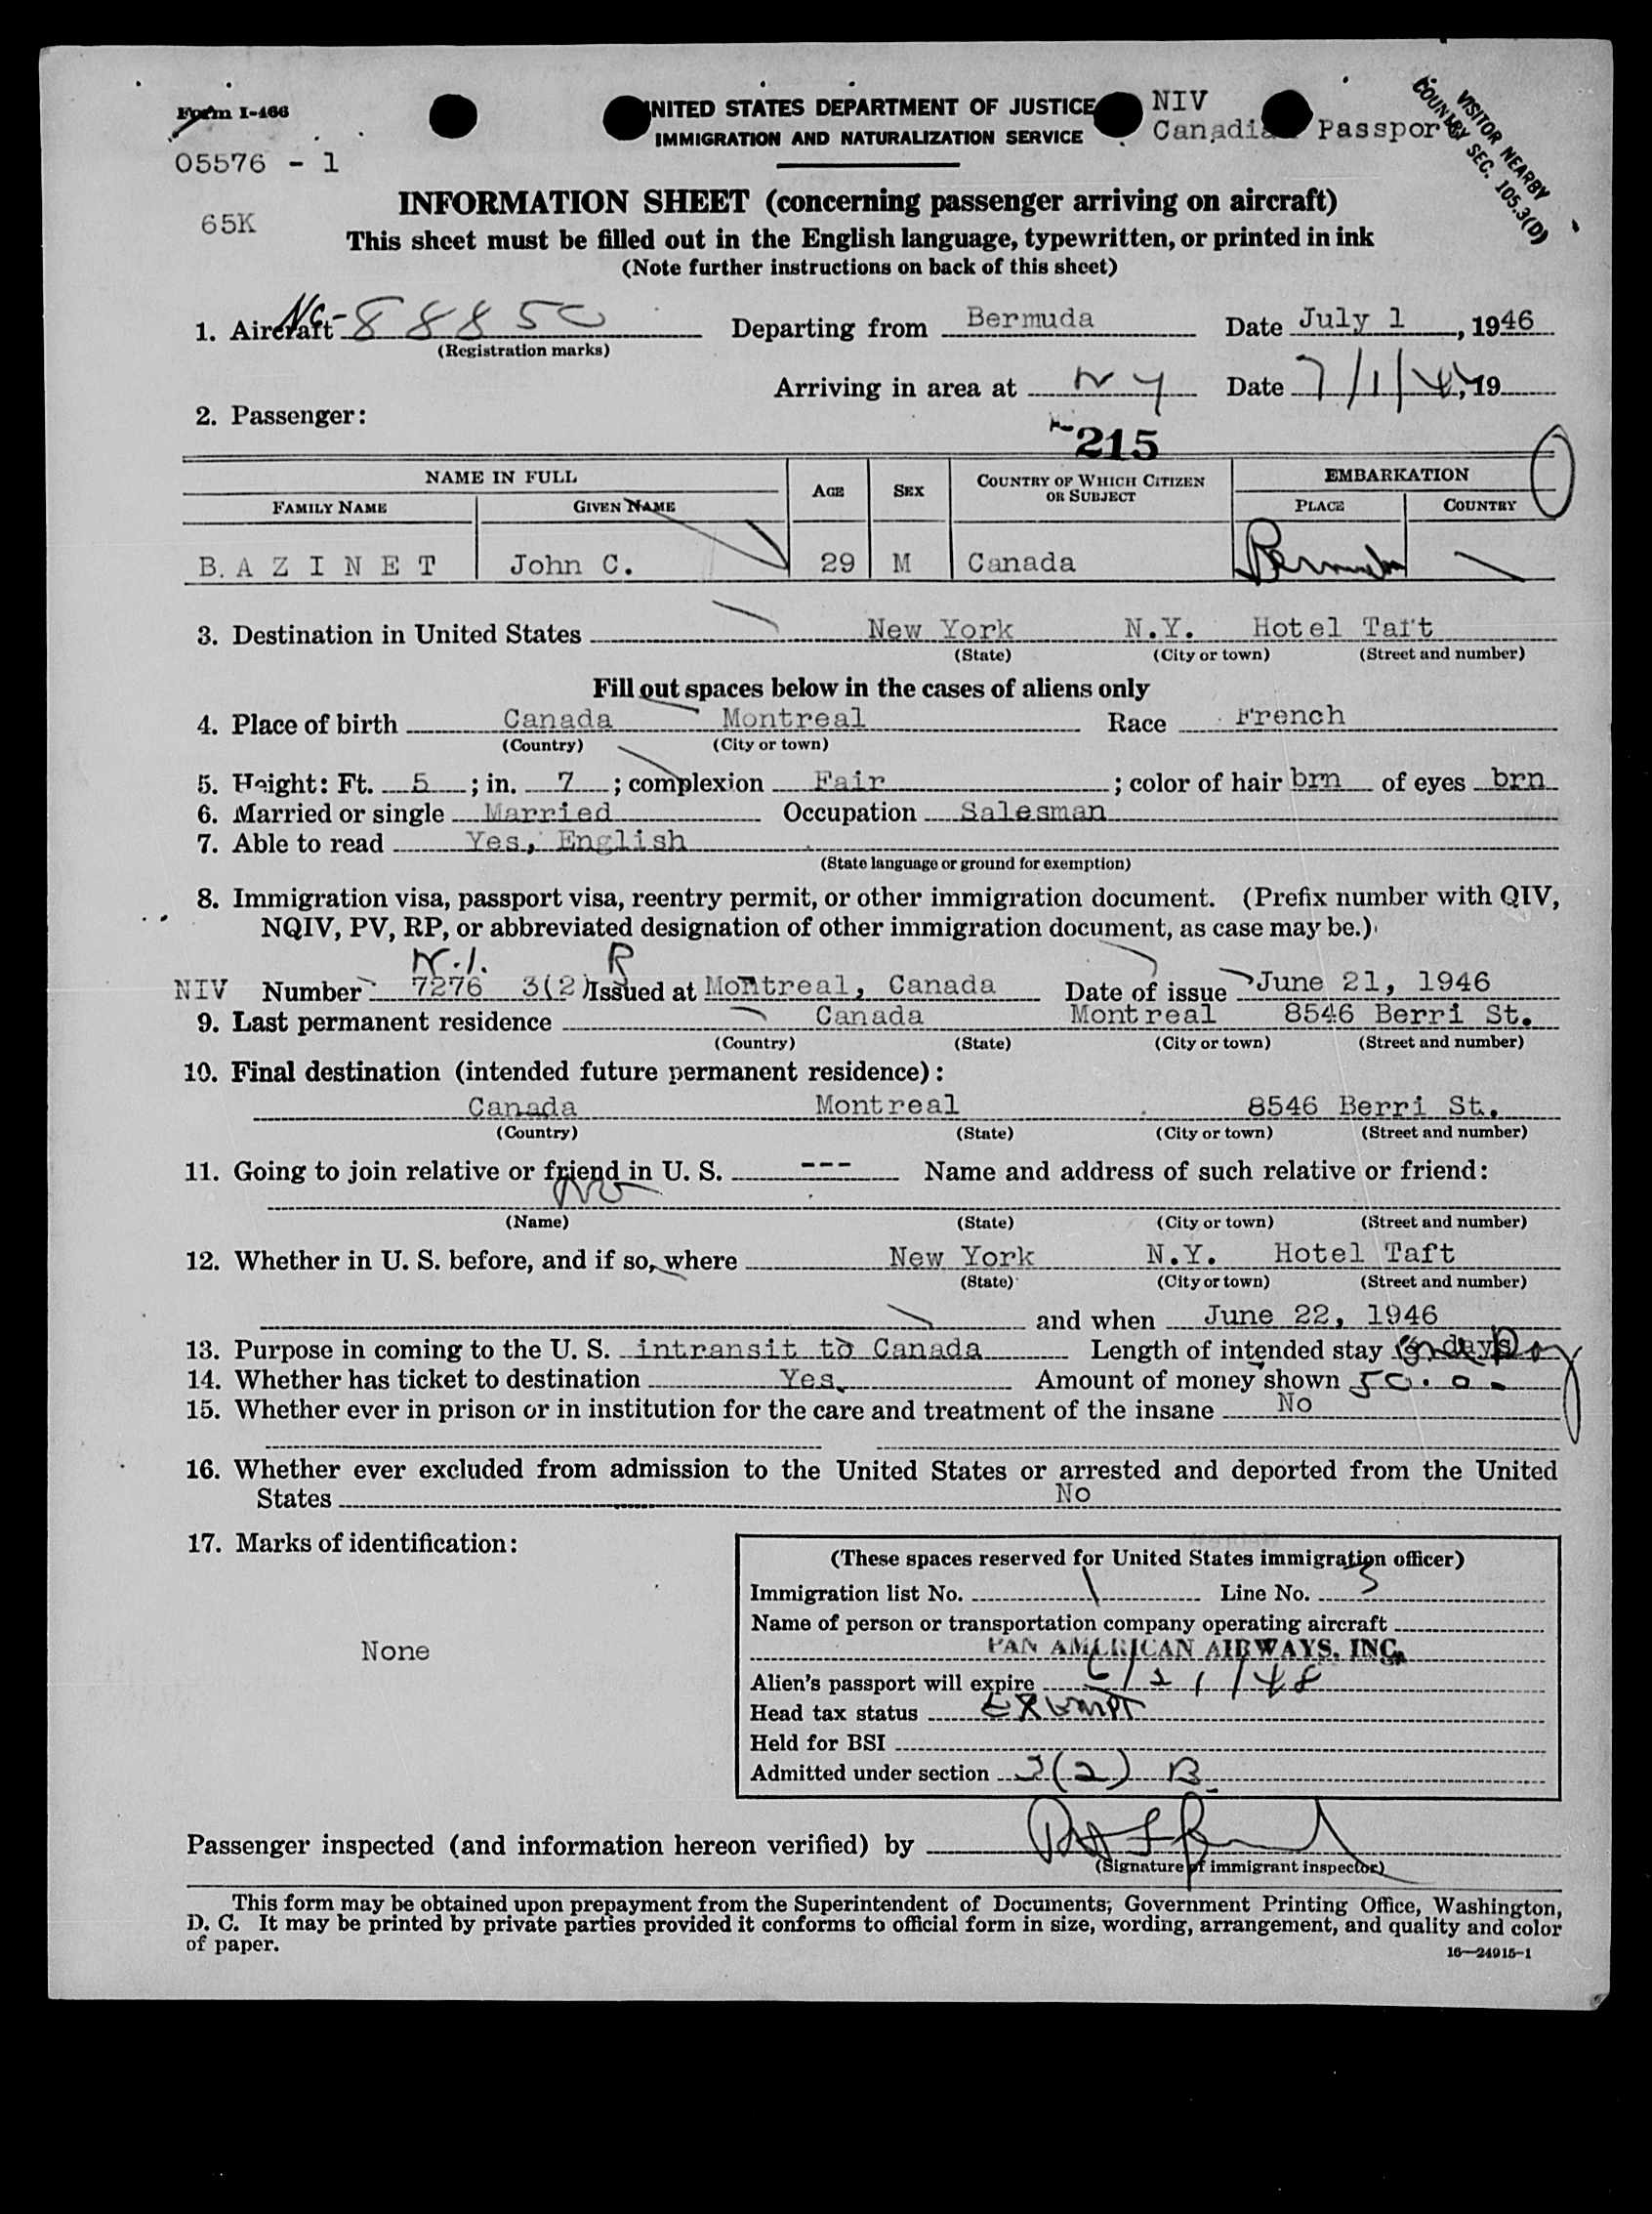 Form I-466
UNITED STATES DEPARTMENT OF JUSTICE
IMMIGRATION AND NATURALIZATION SERVICE
NIV
Canadian Passport
VISITOR NEARBY
COUNTRY SEC. 105.3(D)
05576 - 1
65K
INFORMATION SHEET (concerning passenger arriving on aircraft)
This sheet must be filled out in the English language, typewritten, or printed in ink
(Note further instructions on back of this sheet)
1. Aircraft NC-88850 Departing from Bermuda Date July 1, 1946
(Registration marks)
Arriving in area at NY Date 7/1/46, 19
2. Passenger:
215
NAME IN FULL AGE SEX COUNTRY OF WHICH CITIZEN OR SUBJECT EMBARKATION
FAMILY NAME GIVEN NAME PLACE COUNTRY
B. A Z I N E T John C. 29 M Canada Bermuda
3. Destination in United States New York N.Y. Hotel Taft
(State) (City or town) (Street and number)
Fill out spaces below in the cases of aliens only
4. Place of birth Canada Montreal Race French
(Country) (City or town)
5. Height: Ft. 5; in. 7; complexion Fair; color of hair brn of eyes brn
6. Married or single Married Occupation Salesman
7. Able to read Yes, English
(State language or ground for exemption)
8. Immigration visa, passport visa, reentry permit, or other immigration document. (Prefix number with QIV,
NQIV, PV, RP, or abbreviated designation of other immigration document, as case may be.)
N.I. R
NIV Number 7276 3(2) Issued at Montreal, Canada Date of issue June 21, 1946
9. Last permanent residence Canada Montreal 8546 Berri St.
(Country) (State) (City or town) (Street and number)
10. Final destination (intended future permanent residence):
Canada Montreal 8546 Berri St.
(Country) (State) (City or town) (Street and number)
11. Going to join relative or friend in U. S. --- Name and address of such relative or friend:
No
(Name) (State) (City or town) (Street and number)
12. Whether in U. S. before, and if so, where New York N.Y. Hotel Taft
(State) (City or town) (Street and number)
and when June 22, 1946
13. Purpose in coming to the U. S. intransit to Canada Length of intended stay days
14. Whether has ticket to destination Yes. Amount of money shown 50.0
15. Whether ever in prison or in institution for the care and treatment of the insane No
16. Whether ever excluded from admission to the United States or arrested and deported from the United
States No
17. Marks of identification:
None
(These spaces reserved for United States immigration officer)
Immigration list No. 1 Line No. 3
Name of person or transportation company operating aircraft
PAN AMERICAN AIRWAYS, INC.
Alien's passport will expire 6/21/48
Head tax status Exempt
Held for BSI
Admitted under section 3(2) B
Passenger inspected (and information hereon verified) by
(Signature of immigrant inspector)
This form may be obtained upon prepayment from the Superintendent of Documents, Government Printing Office, Washington,
D. C. It may be printed by private parties provided it conforms to official form in size, wording, arrangement, and quality and color
of paper.
16—24915-1